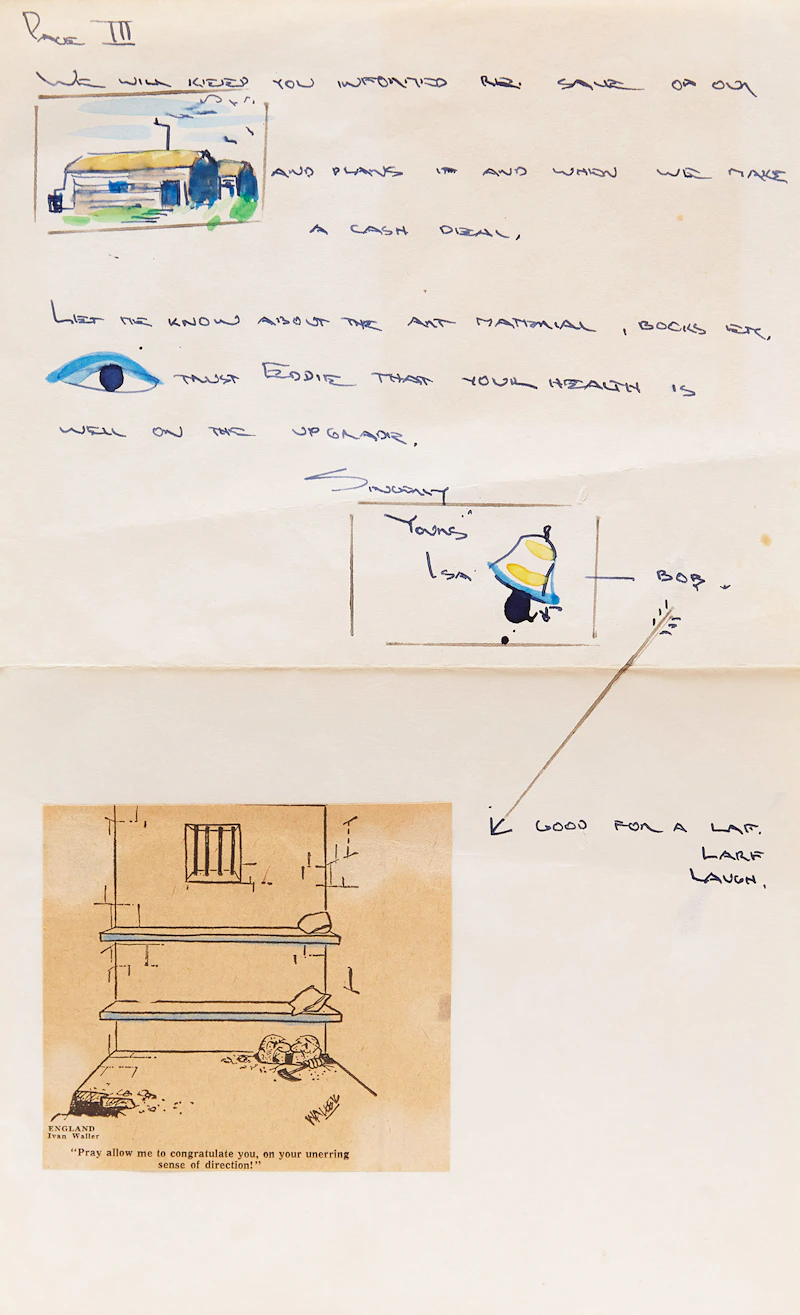 Page III
We will keep you informed re: sale of our
and plans if and when we make
a cash deal,
Let me know about the art material, books etc.
trust Eddie that your health is
well on the upgrade.
Sincerly
Yours"
Isa
Bob.
Good for a laf.
Larf
Laugh.
WALLER
ENGLAND
Ivan Waller
"Pray allow me to congratulate you, on your unerring
sense of direction!"